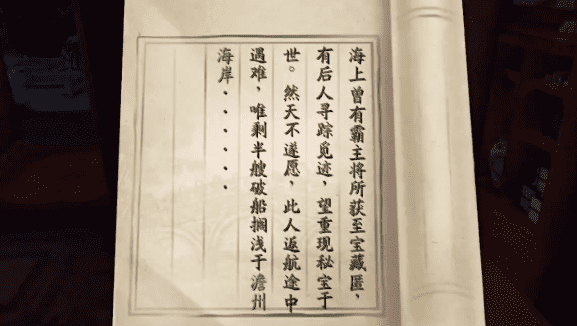 海上曾有霸主将所获至宝藏匿，
有后人寻踪觅迹，望重现秘宝于
世。然天不遂愿，此人返航途中
遇难，唯剩半艘破船搁浅于澹州
海岸······